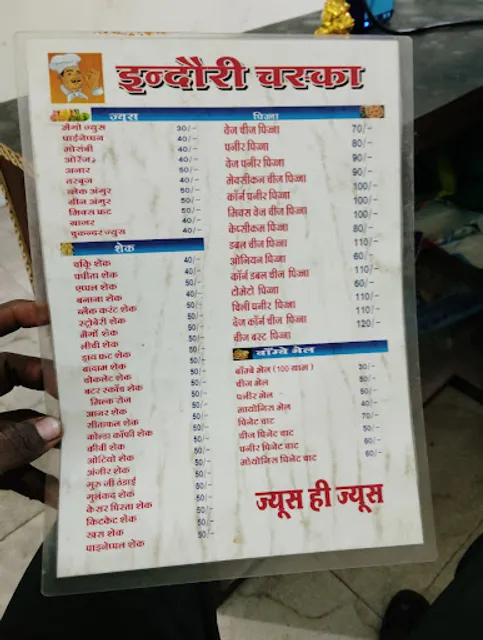 इन्दौरी चस्का
ज्यूस
मेंगो ज्यूस 30/-
पाईनेप्पल 40/-
मोसंबी 40/-
ओरेंज 40/-
अनार 50/-
तरबूज 40/-
ब्लेक अंगुर 50/-
ग्रीन अंगुर 50/-
मिक्स फ्रूट 50/-
गाजर 40/-
चुकन्दर ज्यूस 40/-
शेक
चीकू शेक 40/-
पपीता शेक 40/-
एप्पल शेक 50/-
बनाना शेक 40/-
ब्लैक करंट शेक 50/-
स्ट्रोबेरी शेक 50/-
मेंगो शेक 50/-
लीची शेक 50/-
ड्राय फ्रूट शेक 50/-
बादाम शेक 50/-
चोकलेट शेक 50/-
बटर स्कॉच शेक 50/-
मिल्क रोज 50/-
अनार शेक 50/-
सीताफल शेक 50/-
कोल्ड कॉफी शेक 50/-
कीवी शेक 50/-
ओरियो शेक 50/-
अंजीर शेक 50/-
गुरु जी ठंडाई 50/-
गुलकंद शेक 50/-
केसर पिस्ता शेक 50/-
किटकेट शेक 50/-
खस शेक 50/-
पाइनेप्पल शेक 50/-
पिज्जा
वेज चीज पिज्जा 70/-
पनीर पिज्जा 80/-
वेज पनीर पिज्जा 90/-
मेक्सीकन चीज पिज्जा 90/-
कॉर्न पनीर पिज्जा 100/-
मिक्स वेज चीज पिज्जा 100/-
केप्सीकम पिज्जा 80/-
डबल चीज पिज्जा 110/-
ओनियन पिज्जा 60/-
कॉर्न डबल चीज पिज्जा 110/-
टोमेटो पिज्जा 60/-
चिली पनीर पिज्जा 110/-
वेज कॉर्न चीज पिज्जा 110/-
चीज बस्ट पिज्जा 120/-
बॉम्बे भेल
बॉम्बे भेल (100 ग्राम) 30/-
चीज भेल 50/-
पनीर भेल 50/-
मायोनिस भेल 40/-
पिनेट चाट 70/-
चीज पिनेट चाट 50/-
पनीर पिनेट चाट 60/-
मोयोनिस पिनेट चाट 60/-
ज्यूस ही ज्यूस